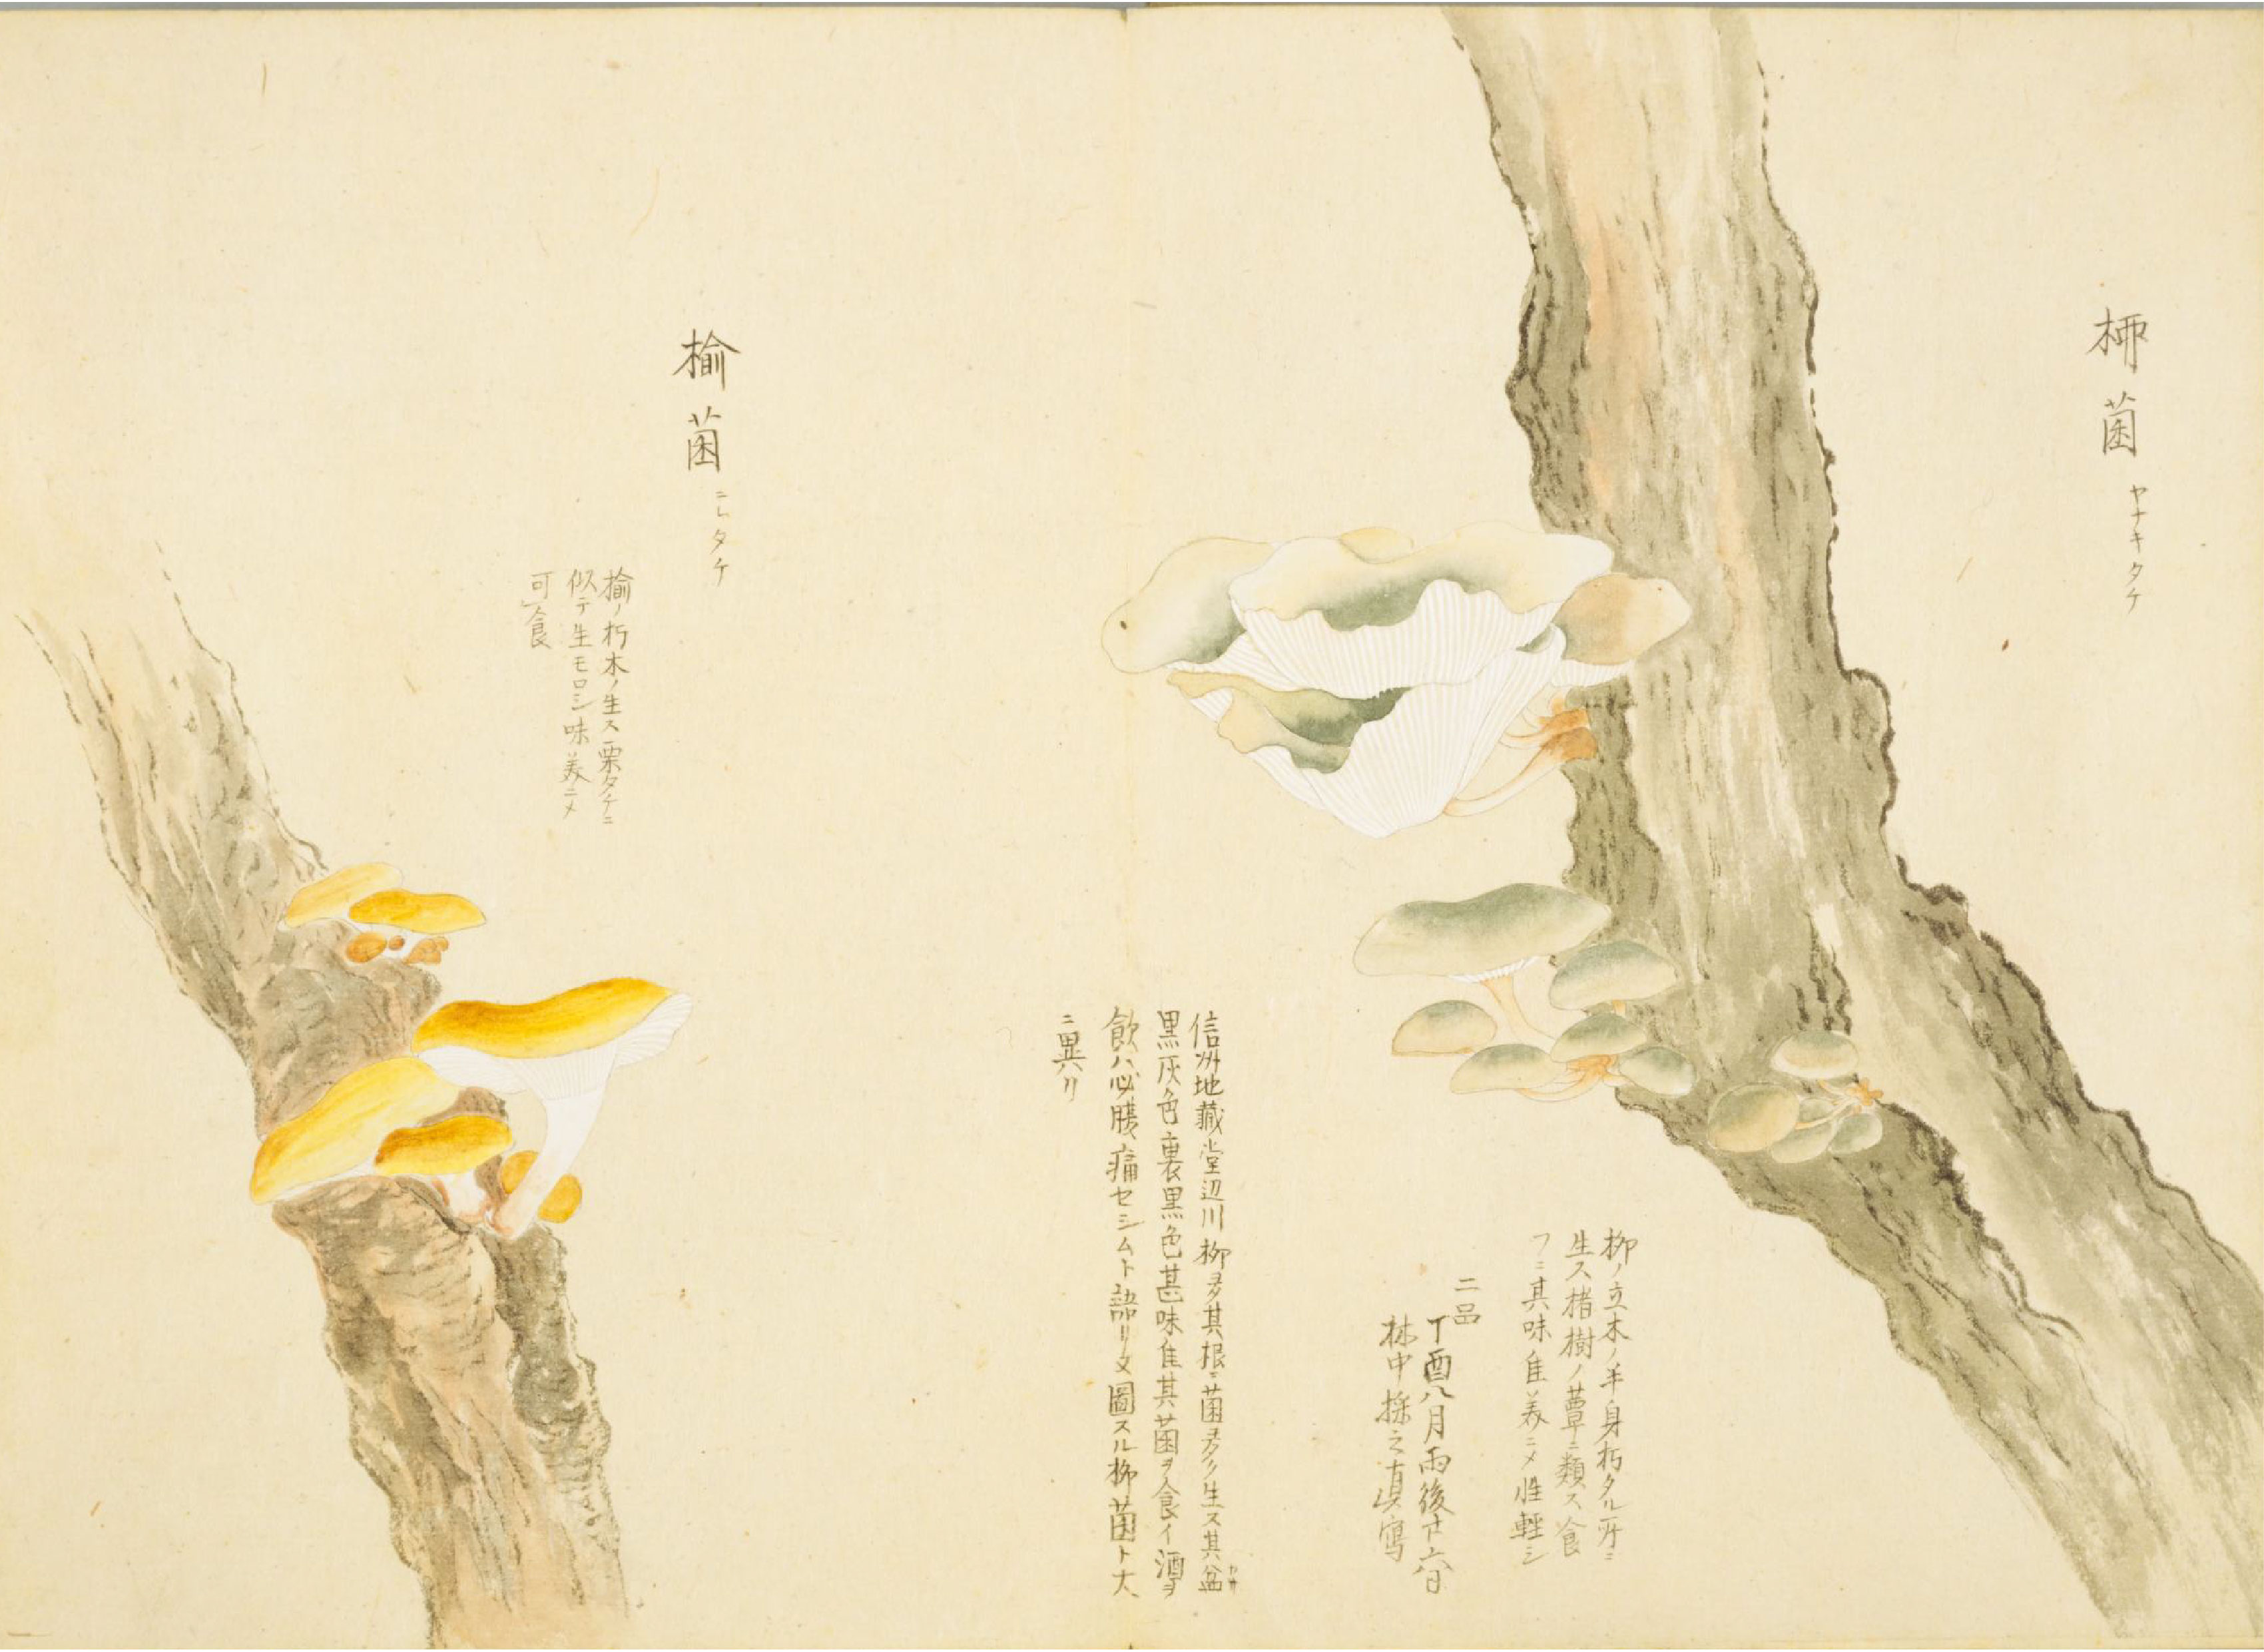 柳菌 ヤナキタケ
柳ノ立木ノ半身朽タル所ニ
生ス楮樹ノ蕈ニ類ス食
フニ其味佳美ニメ性軽シ
二品
丁酉八月雨後廿六日
林中採之真寫
信州地藏堂辺川柳多其根ニ菌多ク生ス其盆カサ
黒灰色裏黒色甚味佳其菌ヲ食イ酒ヲ
飲ハ必腰痛セシムト語リ又圖スル柳菌ト大
ニ異ハリ
榆菌 ニレタケ
榆ノ朽木ノ生ス栗タケニ
似テ生モロシ味美ニメ
可食